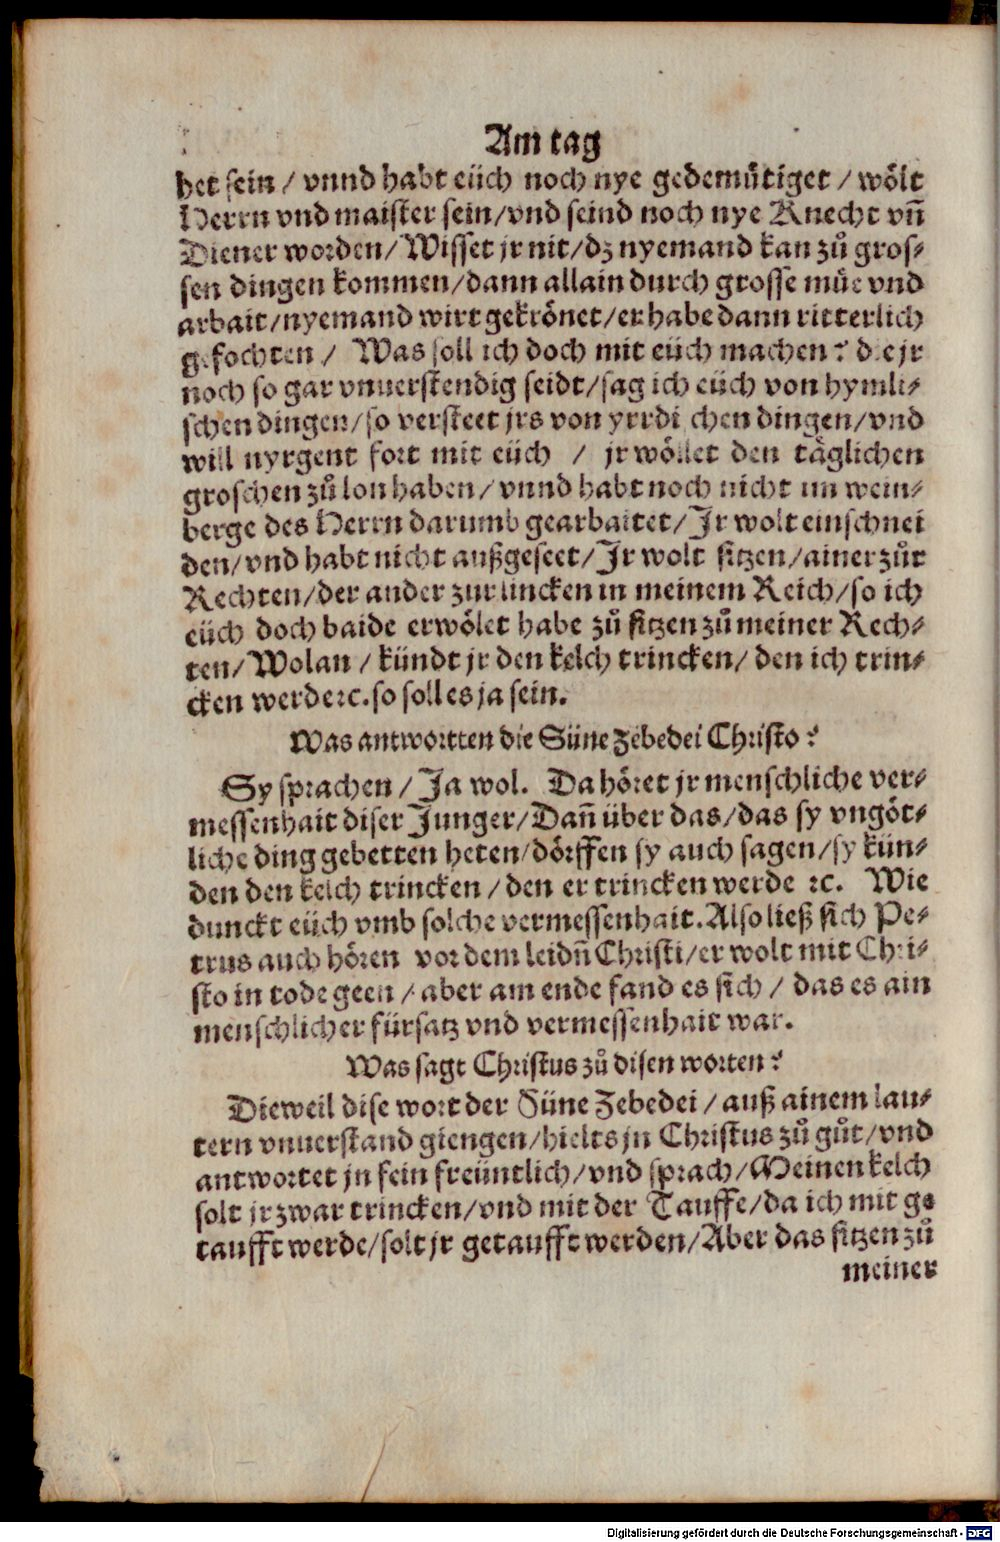 Am tag
het sein / vnnd habt eüch noch nye gedemütiget / wölt
Herrn vnd maister sein/vnd seind noch nye Knecht vñ
Diener worden/Wisset jr nit/dz nyemand kan zů gros-
sen dingen kommen/dann allain durch grosse müe vnd
arbait/nyemand wirt gekrönet/er habe dann ritterlich
gefochten / Was soll ich doch mit eüch machen? die jr
noch so gar vnuerstendig seidt/sag ich eüch von hymli-
schen dingen/so versteet jrs von yrrdischen dingen/vnd
will nyrgent fort mit eüch / jr wöllet den täglichen
groschen zů lon haben/vnnd habt noch nicht im wein-
berge des Herrn darumb gearbaitet/Jr wolt einschnei
den/vnd habt nicht außgeseet/Jr wolt sitzen/ainer zůr
Rechten/der ander zur lincken in meinem Reich/so ich
eüch doch baide erwölet habe zů sitzen zů meiner Rech-
ten/Wolan/kündt jr den kelch trincken/den ich trin-
cken werde ꝛc. so soll es ja sein.
Was antwortten die Süne Zebedei Christo?
Sy sprachen/Ja wol. Da höret jr menschliche ver-
messenhait diser Junger/Dañ über das/das sy vngöt-
liche ding gebetten heten/dörffen sy auch sagen/sy kün-
den den kelch trincken/den er trincken werde ꝛc. Wie
dunckt eüch vmb solche vermessenhait. Also ließ sich Pe-
trus auch hören vor dem leidñ Christi/er wolt mit Chri-
sto in tode geen/aber am ende fand es sich/das es ain
menschlicher fürsatz vnd vermessenhait war.
Was sagt Christus zů disen worten?
Dieweil dise wort der Süne Zebedei/auß ainem lau-
tern vnuerstand giengen/hielts jn Christus zů gůt/vnd
antwortet jn fein freüntlich/vnd sprach/Meinen kelch
solt jr zwar trincken/vnd mit der Tauffe/da ich mit ge
taufft werde/solt jr getaufft werden/Aber das sitzen zů
meiner
Digitalisierung gefördert durch die Deutsche Forschungsgemeinschaft - DFG